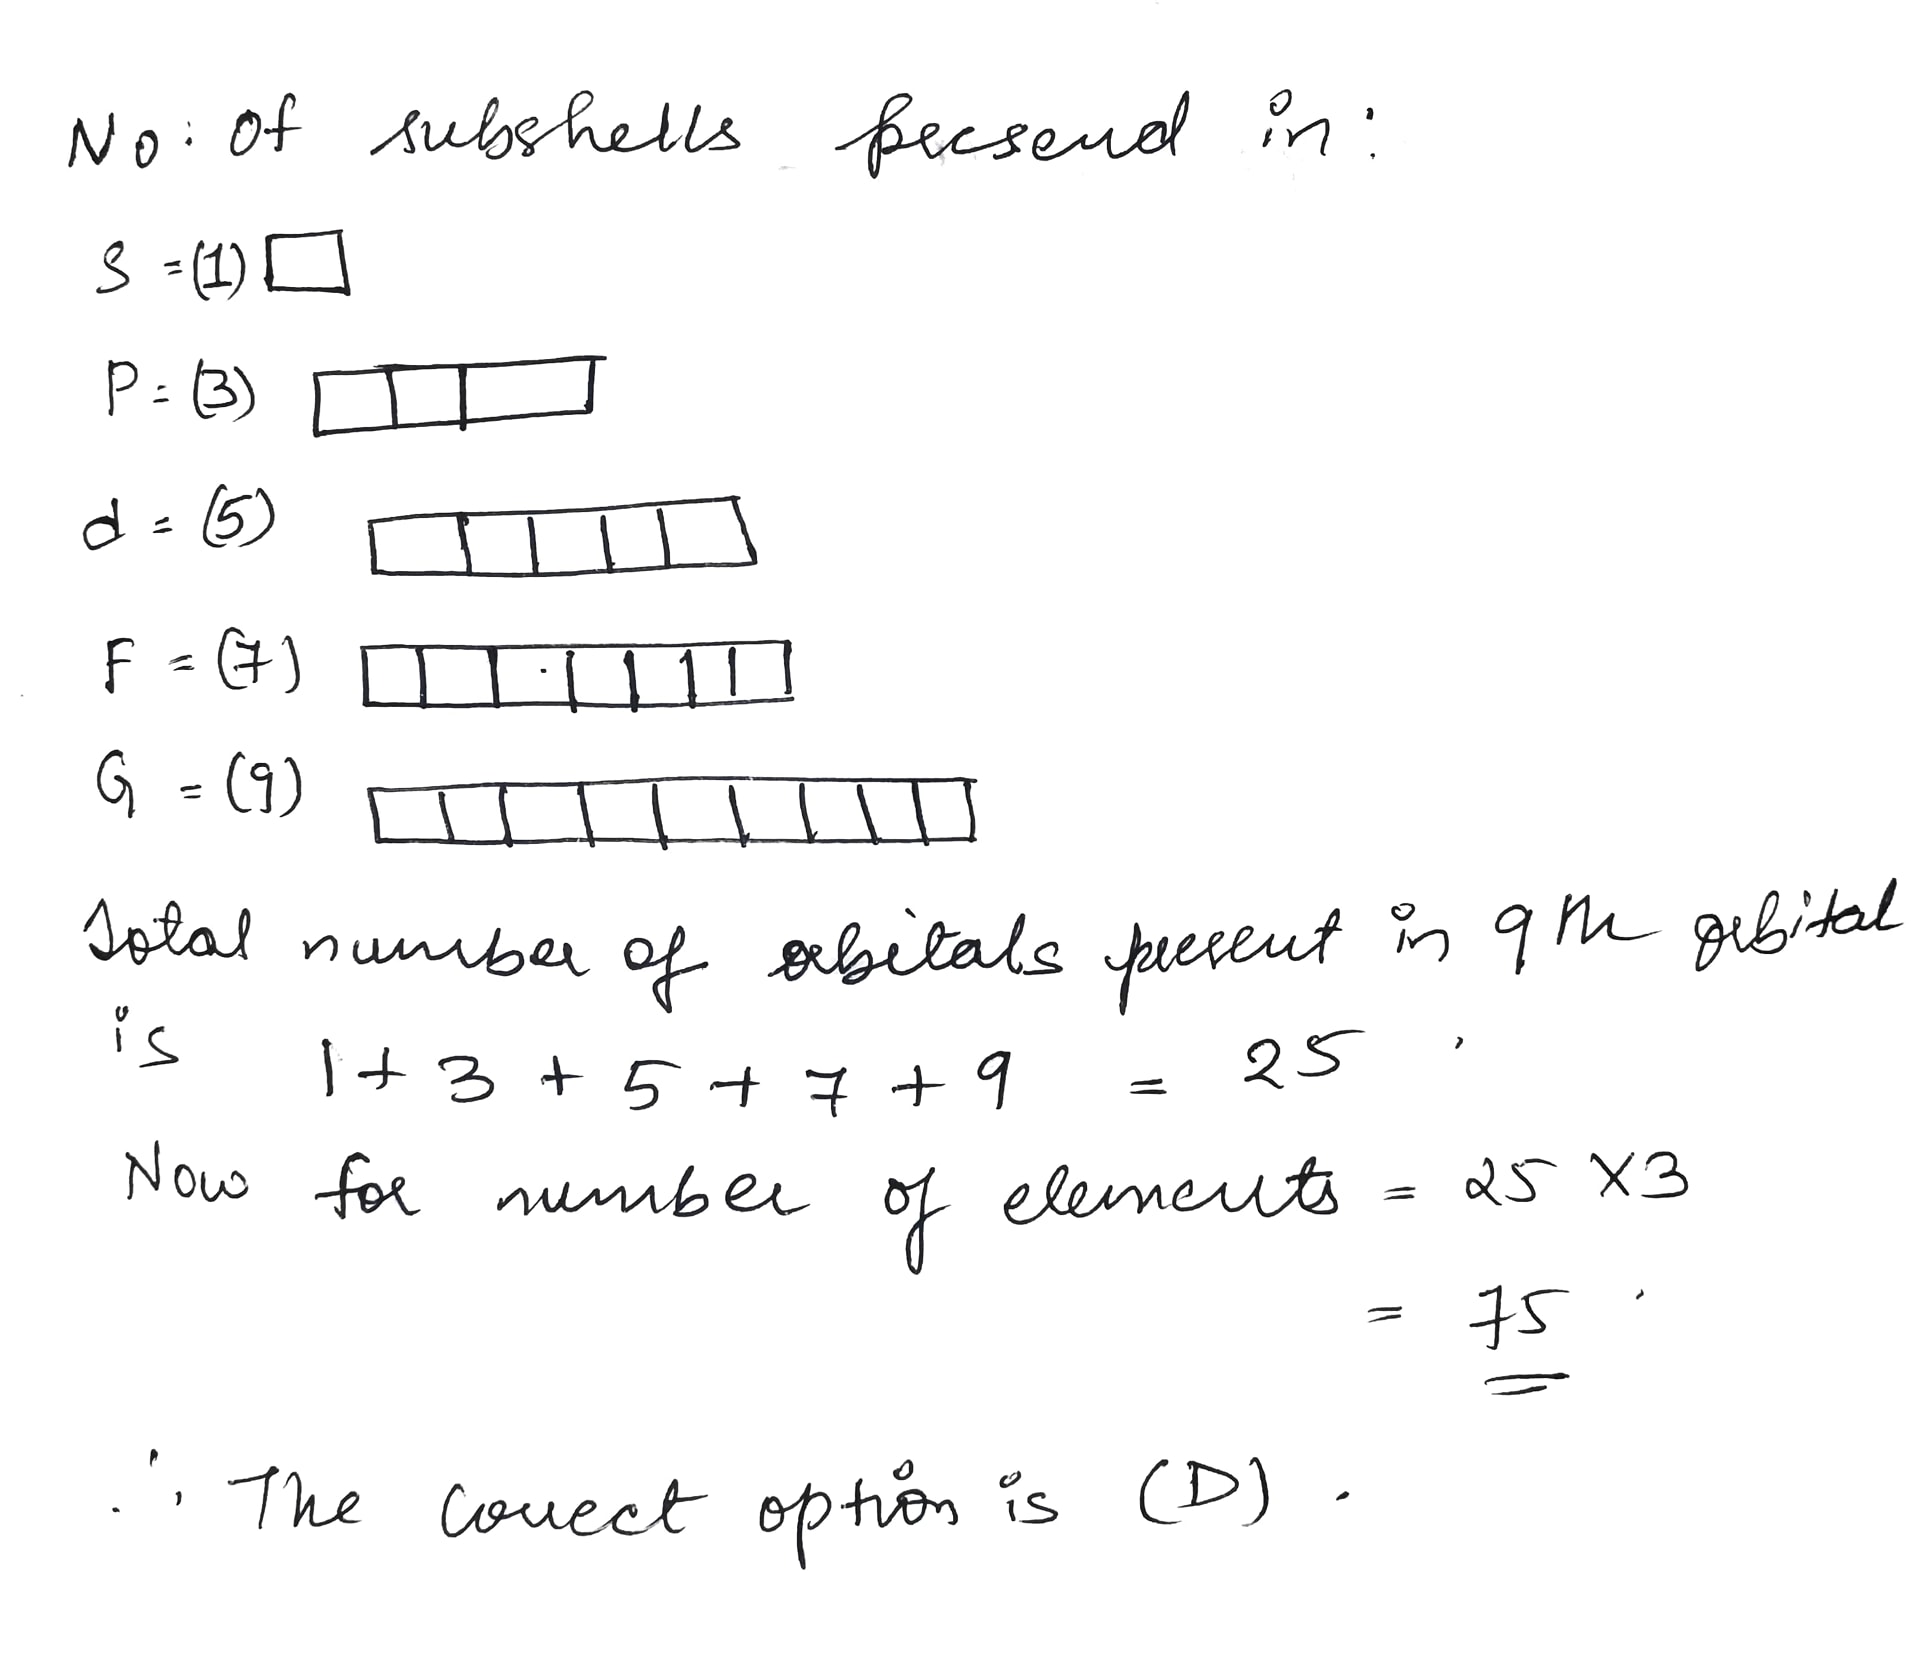 No: Of subshells presend in:
S = (1)
P = (3)
d = (5)
F = (7)
G = (9)
Total number of orbitals present in 9th orbital
is 1 + 3 + 5 + 7 + 9 = 25.
Now for number of elements = 25 X 3
= 75.
∴ The correct option is (D).